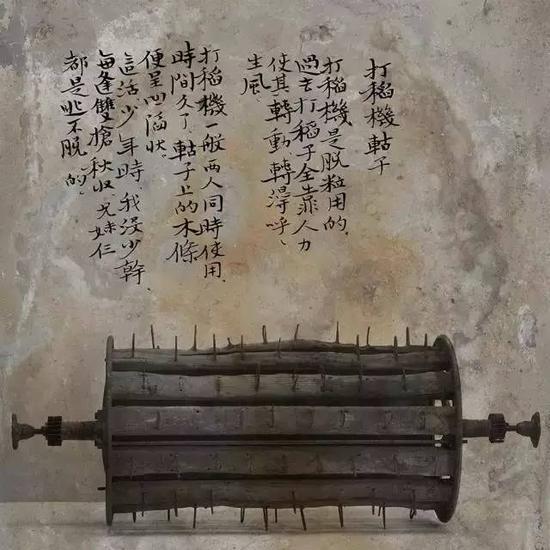 打稻機軲子
打稻機是脫粒用的,
過去打稻子全靠人力
使其轉動轉得呼、
生風。
打稻機一般兩人同時使用,
時間久了軲子上的木條
便呈凹陷狀。
這活少年時,我沒少幹,
每逢雙搶秋收,兄妹仨
都是逃不脫的。